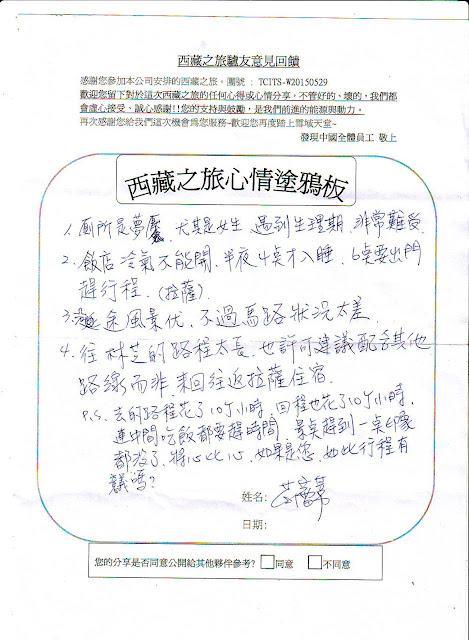 西藏之旅驢友意見回饋
感謝您參加本公司安排的西藏之旅。團號 : TCITS-W20150529
歡迎您留下對於這次西藏之旅的任何心得或心情分享。不管好的、壞的，我們都
會虛心接受、誠心感謝!!您的支持與鼓勵，是我們前進的能源與動力。
再次感謝您給我們這次機會為您服務~歡迎您再度踏上雪域天堂~
發現中國全體員工 敬上
西藏之旅心情塗鴉板
1. 廁所是夢魘, 尤其是女生, 遇到生理期, 非常難受.
2. 飯店冷氣不能開, 半夜4點才入睡, 6點要出門
趕行程. (拉薩).
3. 途風景优, 不過馬路狀況太差.
4. 往林芝的路程太長, 也許可建議配合其他
路線而非來回往返拉薩住宿.
P.S. 去的路程花了10个小時, 回程也花了10个小時,
連中間吃飯都要趕時間, 景点趕到一点印象
都没了, 將心比心, 如果是您, 如此行程有
意義嗎?
姓名:
日期:
您的分享是否同意公開給其他夥伴參考? □同意 □不同意